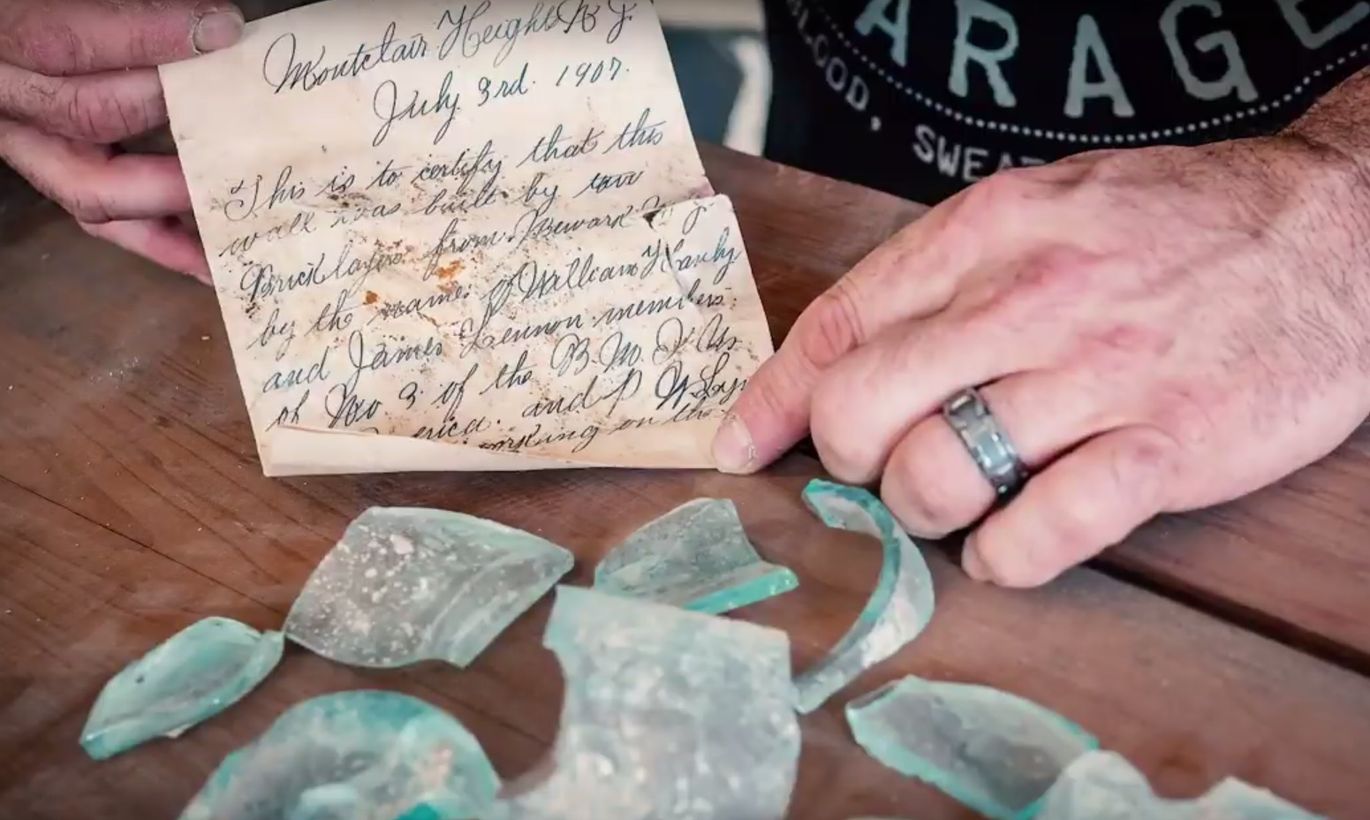 Montclair Heights N J
July 3rd. 1907.
This is to certify that this
wall was built by two
Bricklayers from Newark N. J.
by the name of William Hanly
and James Lennon members
of No. 3 of the B. M. I. U.
erica. and P
working on the
ARAGE
BLOOD, SWEAT